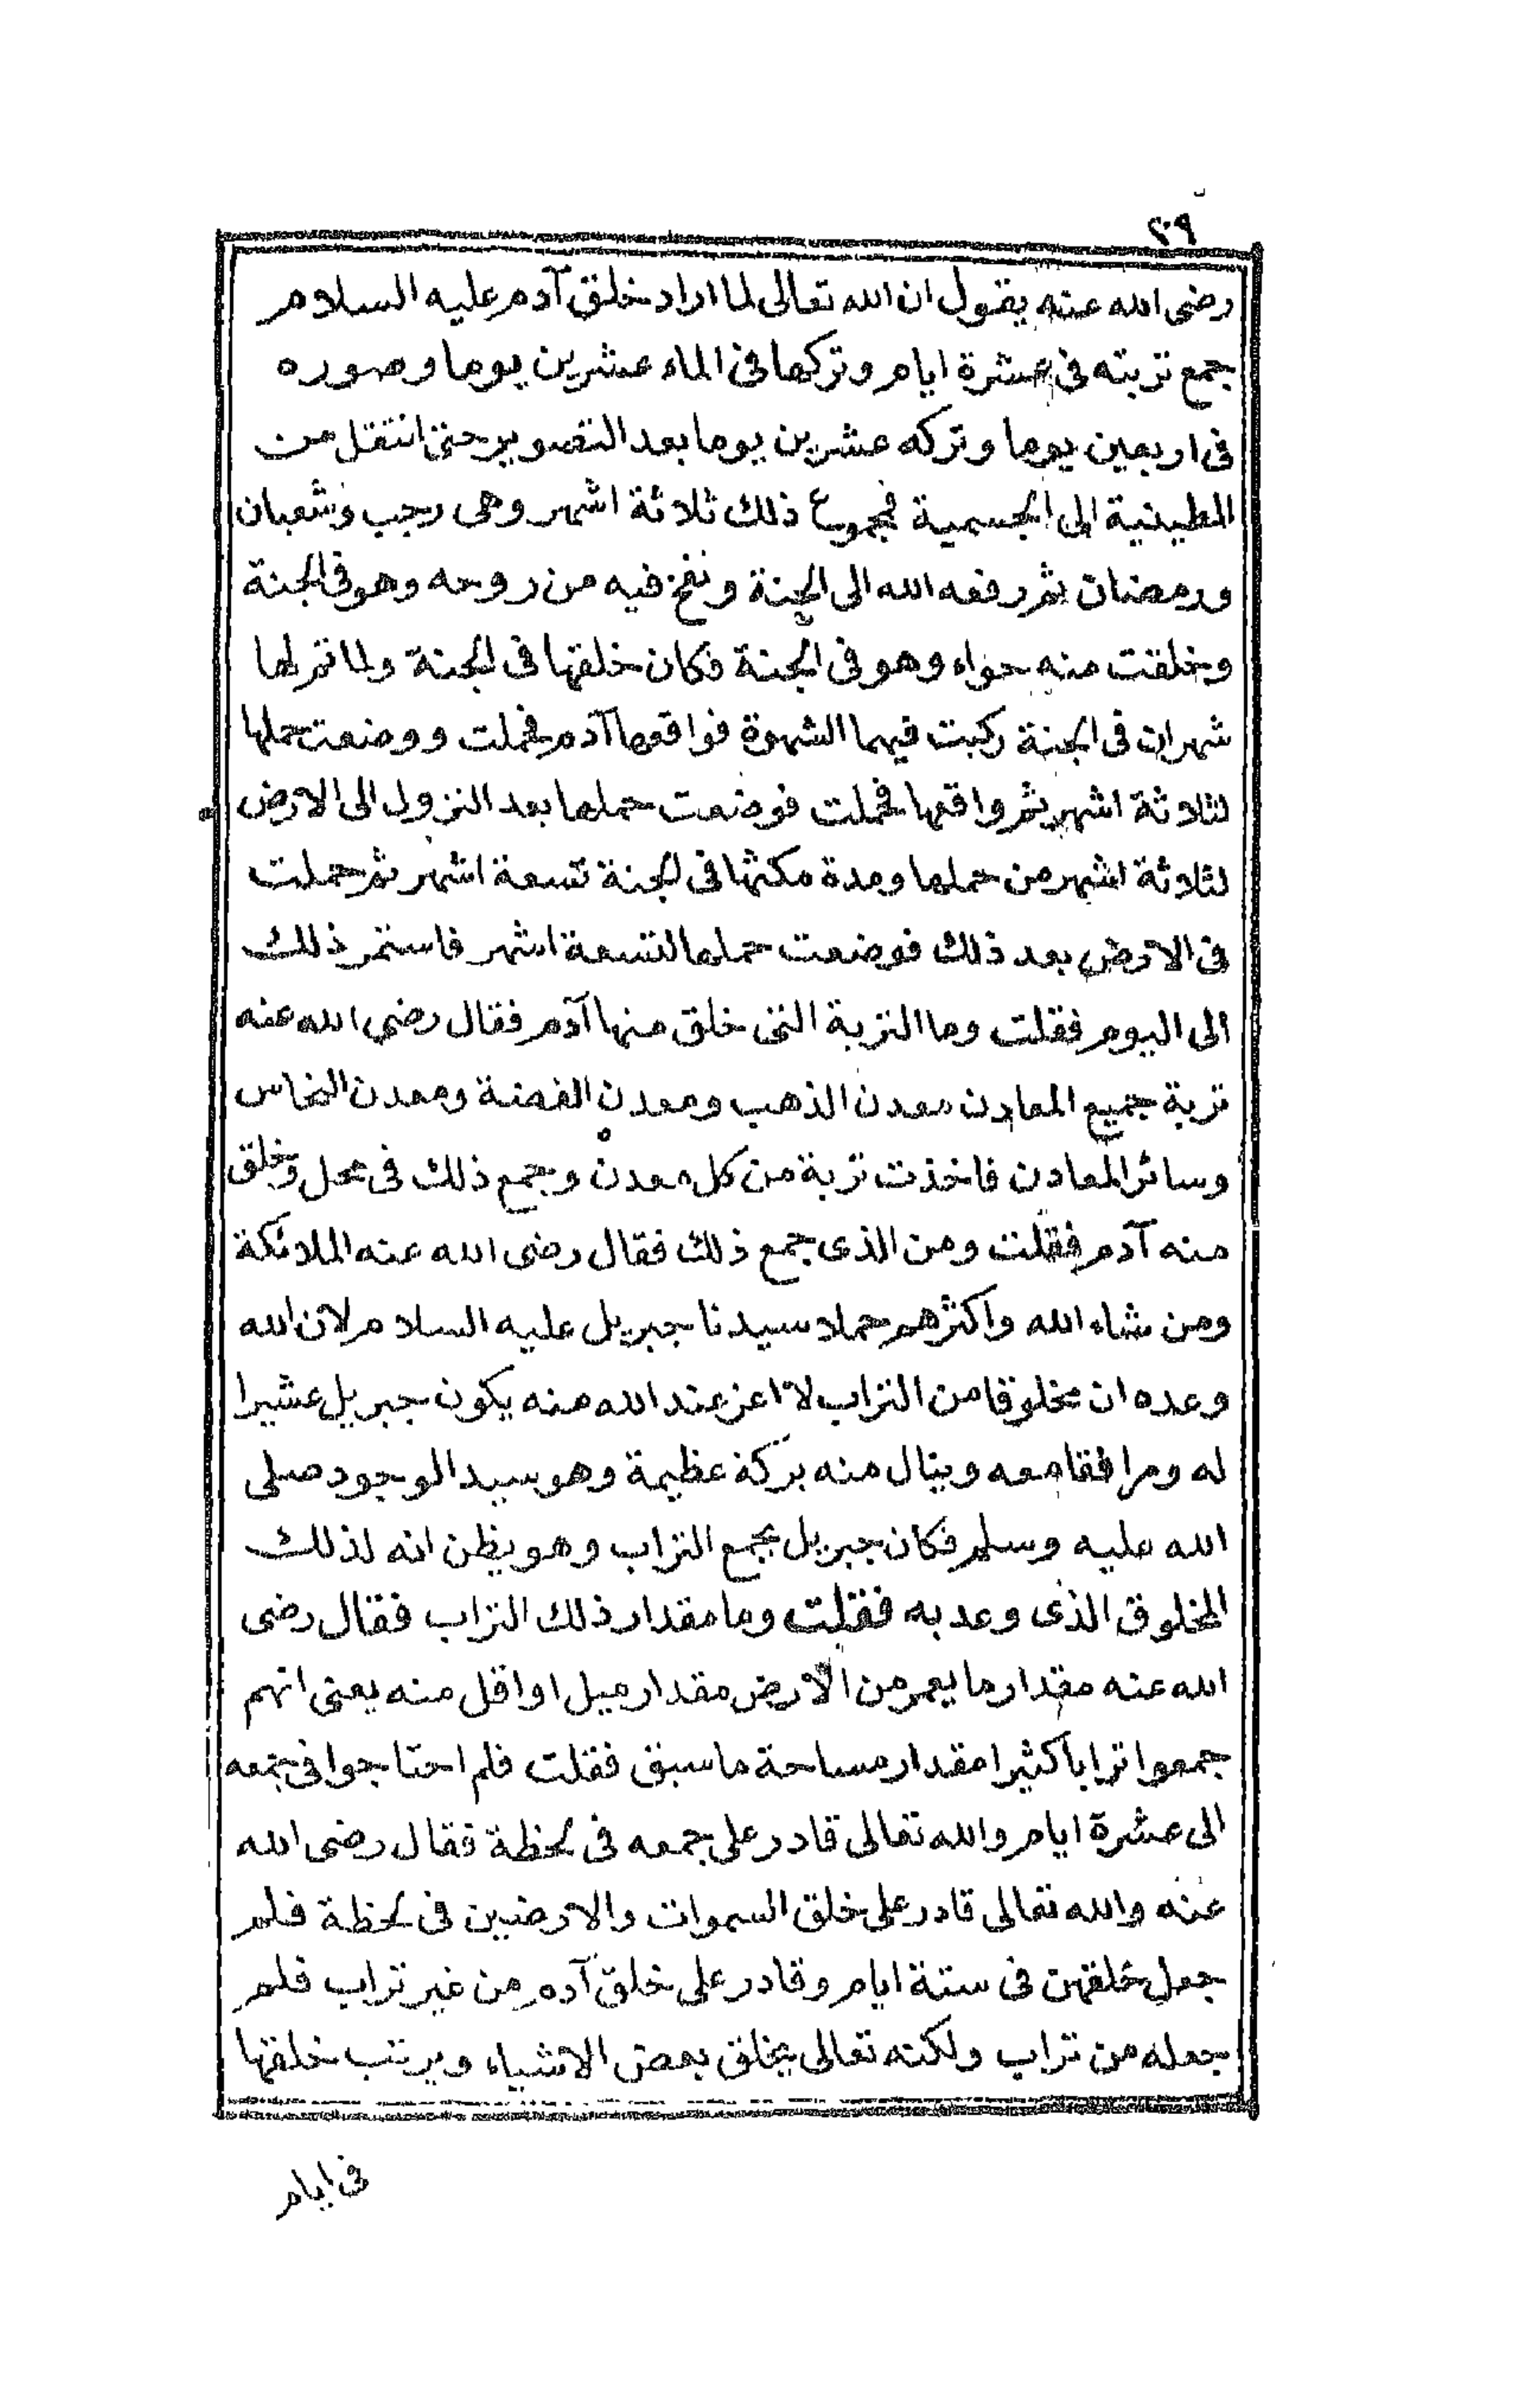 ٢٠٩
رضى الله عنه يقول ان الله تعالى لما اراد خلق آدم عليه السلام
جمع تربته فى عشرة ايام وتركها فى الماء عشرين يوما وصوره
فى اربعين يوما وتركه عشرين يوما بعد التصوير حتى انتقل من
الطينية الى الجسمية فمجموع ذلك ثلاثة اشهر وهى رجب وشعبان
ورمضان ثم رفعه الله الى الجنة ونفخ فيه من روحه وهو فى الجنة
وخلقت منه حواء وهو فى الجنة فكان خلقها فى الجنة ولما تم لها
شهران فى الجنة ركبت فيهما الشهوة فواقعها آدم فحملت ووضعت حملها
لثلاثة اشهر ثم واقعها فحملت فوضعت حملها بعد النزول الى الارض
لثلاثة اشهر من حملها ومدة مكثها فى الجنة تسعة اشهر ثم حملت
فى الارض بعد ذلك فوضعت حملها لتسعة اشهر فاستمر ذلك
الى اليوم فقلت وما التربة التى خلق منها آدم فقال رضى الله عنه
تربة جميع المعادن معدن الذهب ومعدن الفضة ومعدن النحاس
وسائر المعادن فاخذت تربة من كل معدن وجمع ذلك فى محل وخلق
منه آدم فقلت ومن الذى جمع ذلك فقال رضى الله عنه الملائكة
ومن شاء الله واكثرهم حملا سيدنا جبريل عليه السلام لان الله
وعده ان مخلوقا من التراب لا اعز عند الله منه يكون جبريل عشيرا
له ومرافقا معه وينال منه بركة عظيمة وهو سيد الوجود صلى
الله عليه وسلم فكان جبريل يجمع التراب وهو يظن انه لذلك
المخلوق الذى وعد به فقلت وما مقدار ذلك التراب فقال رضى
الله عنه مقدار ما يعمر من الارض مقدار ميل او اقل منه يعنى انهم
جمعوا ترابا كثيرا مقدار مساحة ما سبق فقلت فلم احتاجوا فى جمعه
الى عشرة ايام والله تعالى قادر على جمعه فى لحظة فقال رضى الله
عنه والله تعالى قادر على خلق السموات والارضين فى لحظة فلم
جعل خلقهن فى ستة ايام وقادر على خلق آدم من غير تراب فلم
جعله من تراب ولكنه تعالى يخلق بعض الاشياء ويرتب خلقها
فى ايام